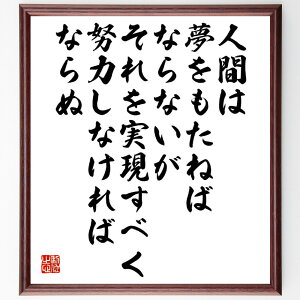 人間は
夢をもたねば
ならないが
それを実現すべく
努力しなければ
ならぬ